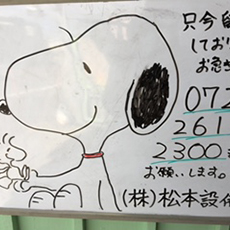 只今留
しており
お急ぎ
072
261
2300
お願いします。
(株)松本設備